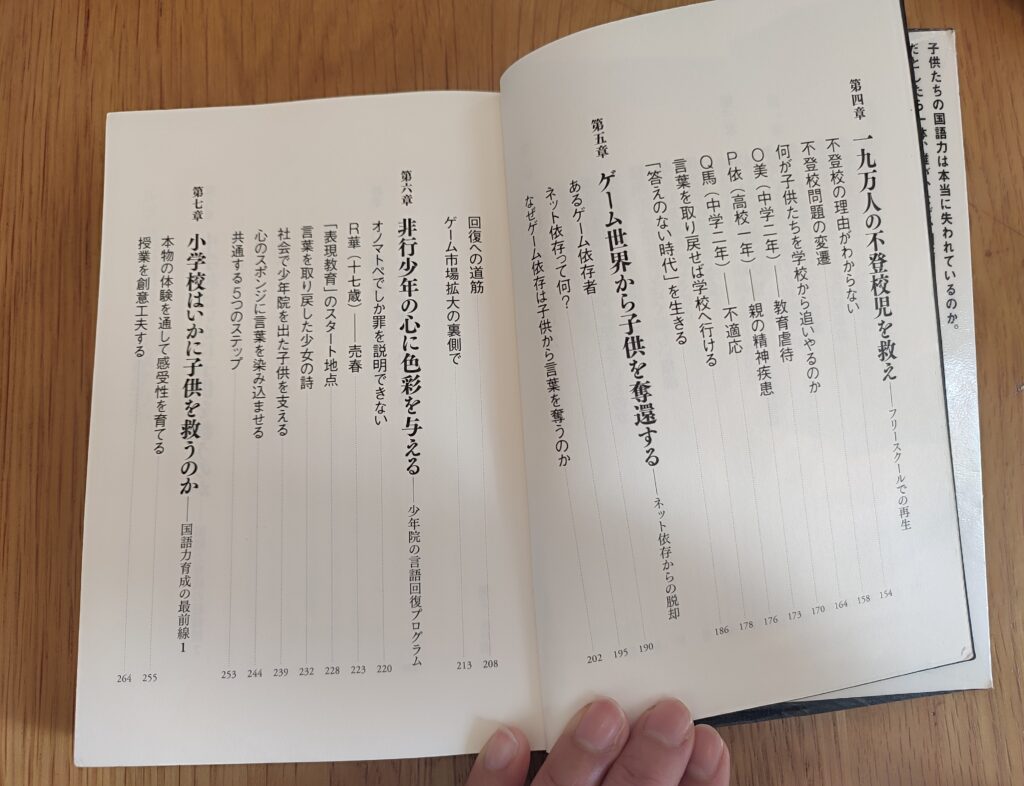 子供たちの国語力は本当に失われているのか。
だとしたら一体、誰が、
第四章 一九万人の不登校児を救え――フリースクールでの再生
不登校の理由がわからない 154
不登校問題の変遷 158
何が子供たちを学校から追いやるのか 164
O美(中学二年)――教育虐待 170
P依(高校一年)――親の精神疾患 173
Q馬(中学二年)――不適応 176
言葉を取り戻せば学校へ行ける 178
「答えのない時代」を生きる 186
第五章 ゲーム世界から子供を奪還する――ネット依存からの脱却
あるゲーム依存者 190
ネット依存って何? 195
なぜゲーム依存は子供から言葉を奪うのか 202
回復への道筋 208
ゲーム市場拡大の裏側で 213
第六章 非行少年の心に色彩を与える――少年院の言語回復プログラム
オノマトペでしか罪を説明できない 220
R華(十七歳)――売春 223
「表現教育」のスタート地点 228
言葉を取り戻した少女の詩 232
社会で少年院を出た子供を支える 239
心のスポンジに言葉を染み込ませる 244
共通する5つのステップ 253
第七章 小学校はいかに子供を救うのか――国語力育成の最前線1
本物の体験を通して感受性を育てる 255
授業を創意工夫する 264